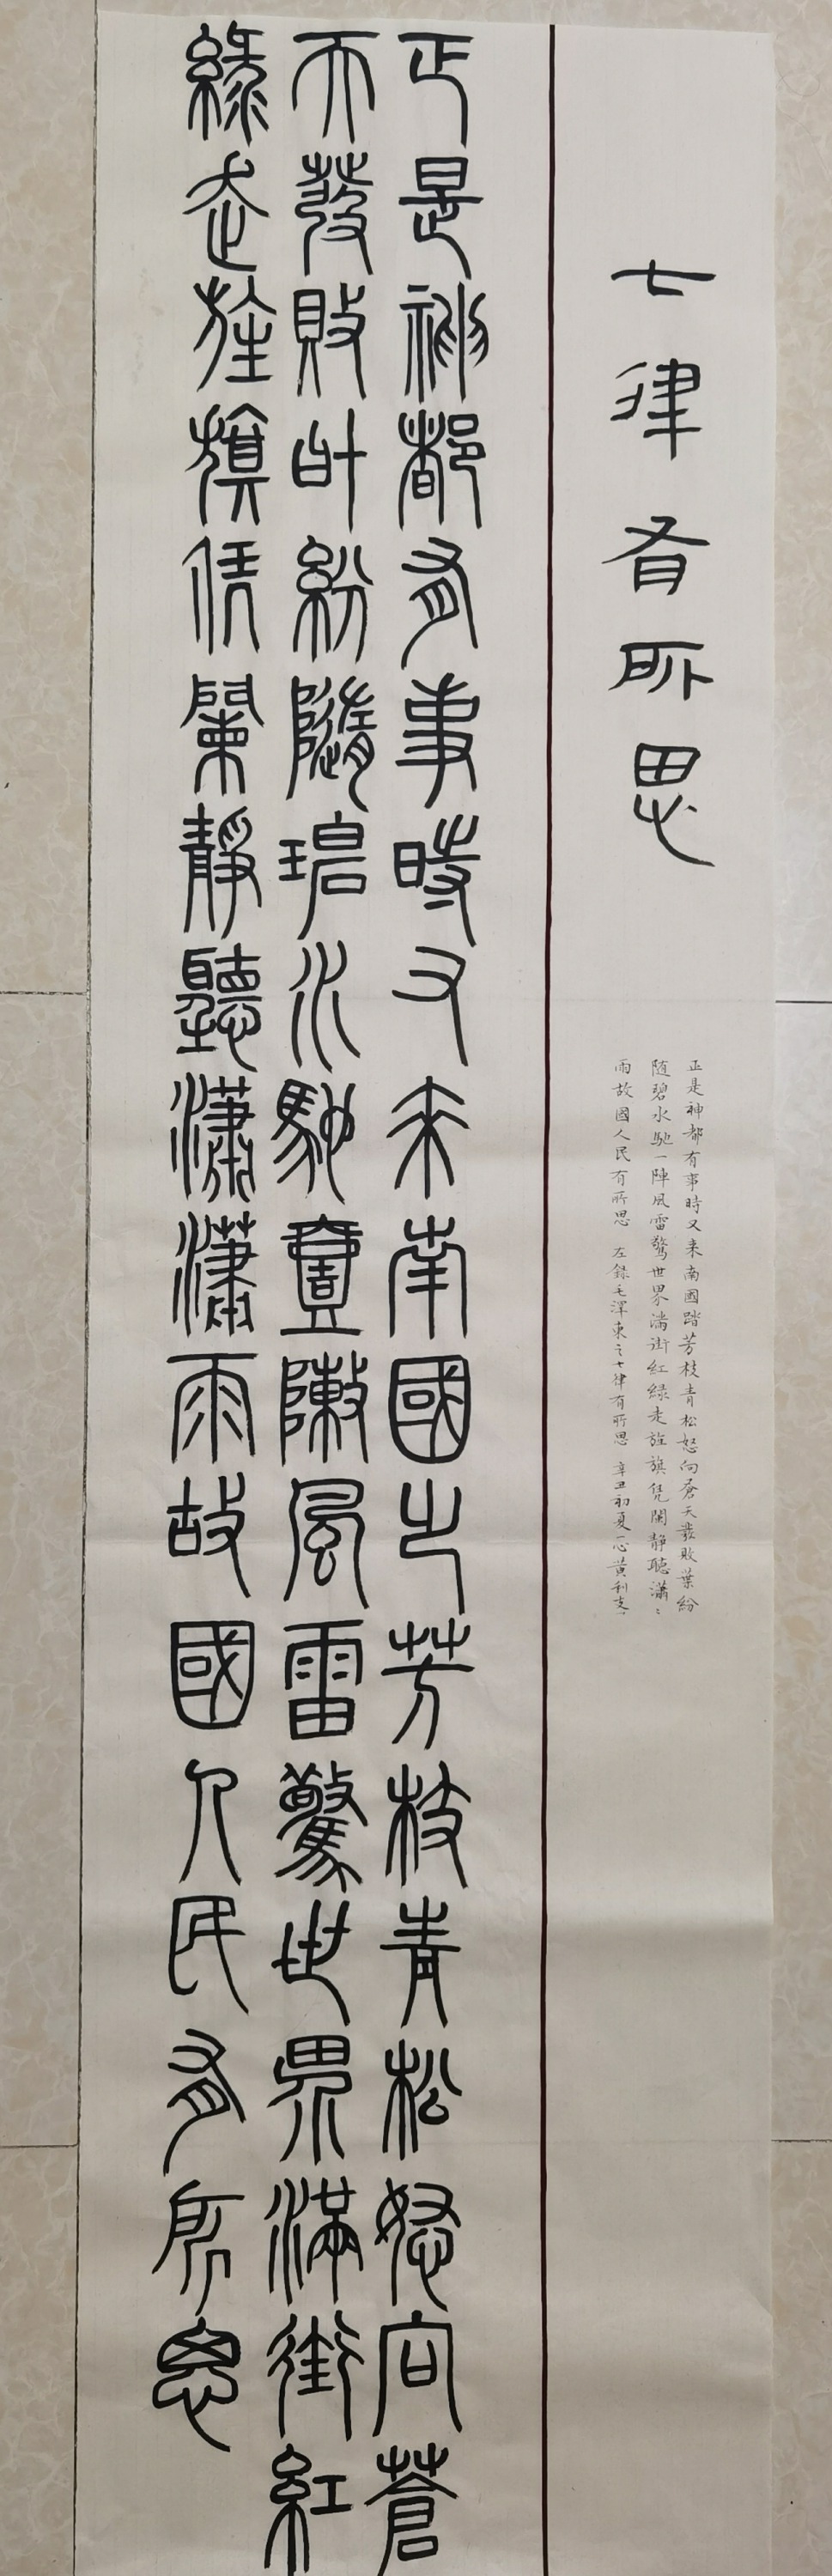 七律有所思
正是神都有事時又来南國踏芳枝青松怒向蒼天發敗葉紛
随碧水馳一陣風雷驚世界满街紅緑走旌旗凭闌静聽瀟々
雨故國人民有所思 左録毛澤東之七律有所思 辛丑初夏 黄利
正是神都有事時又來南國芳枝青松怒向蒼
天發敗叶紛隨碧水馳壹陣風雷驚世界滿街紅
緑走旌旗凭闌靜聽瀟瀟雨故國人民有所思